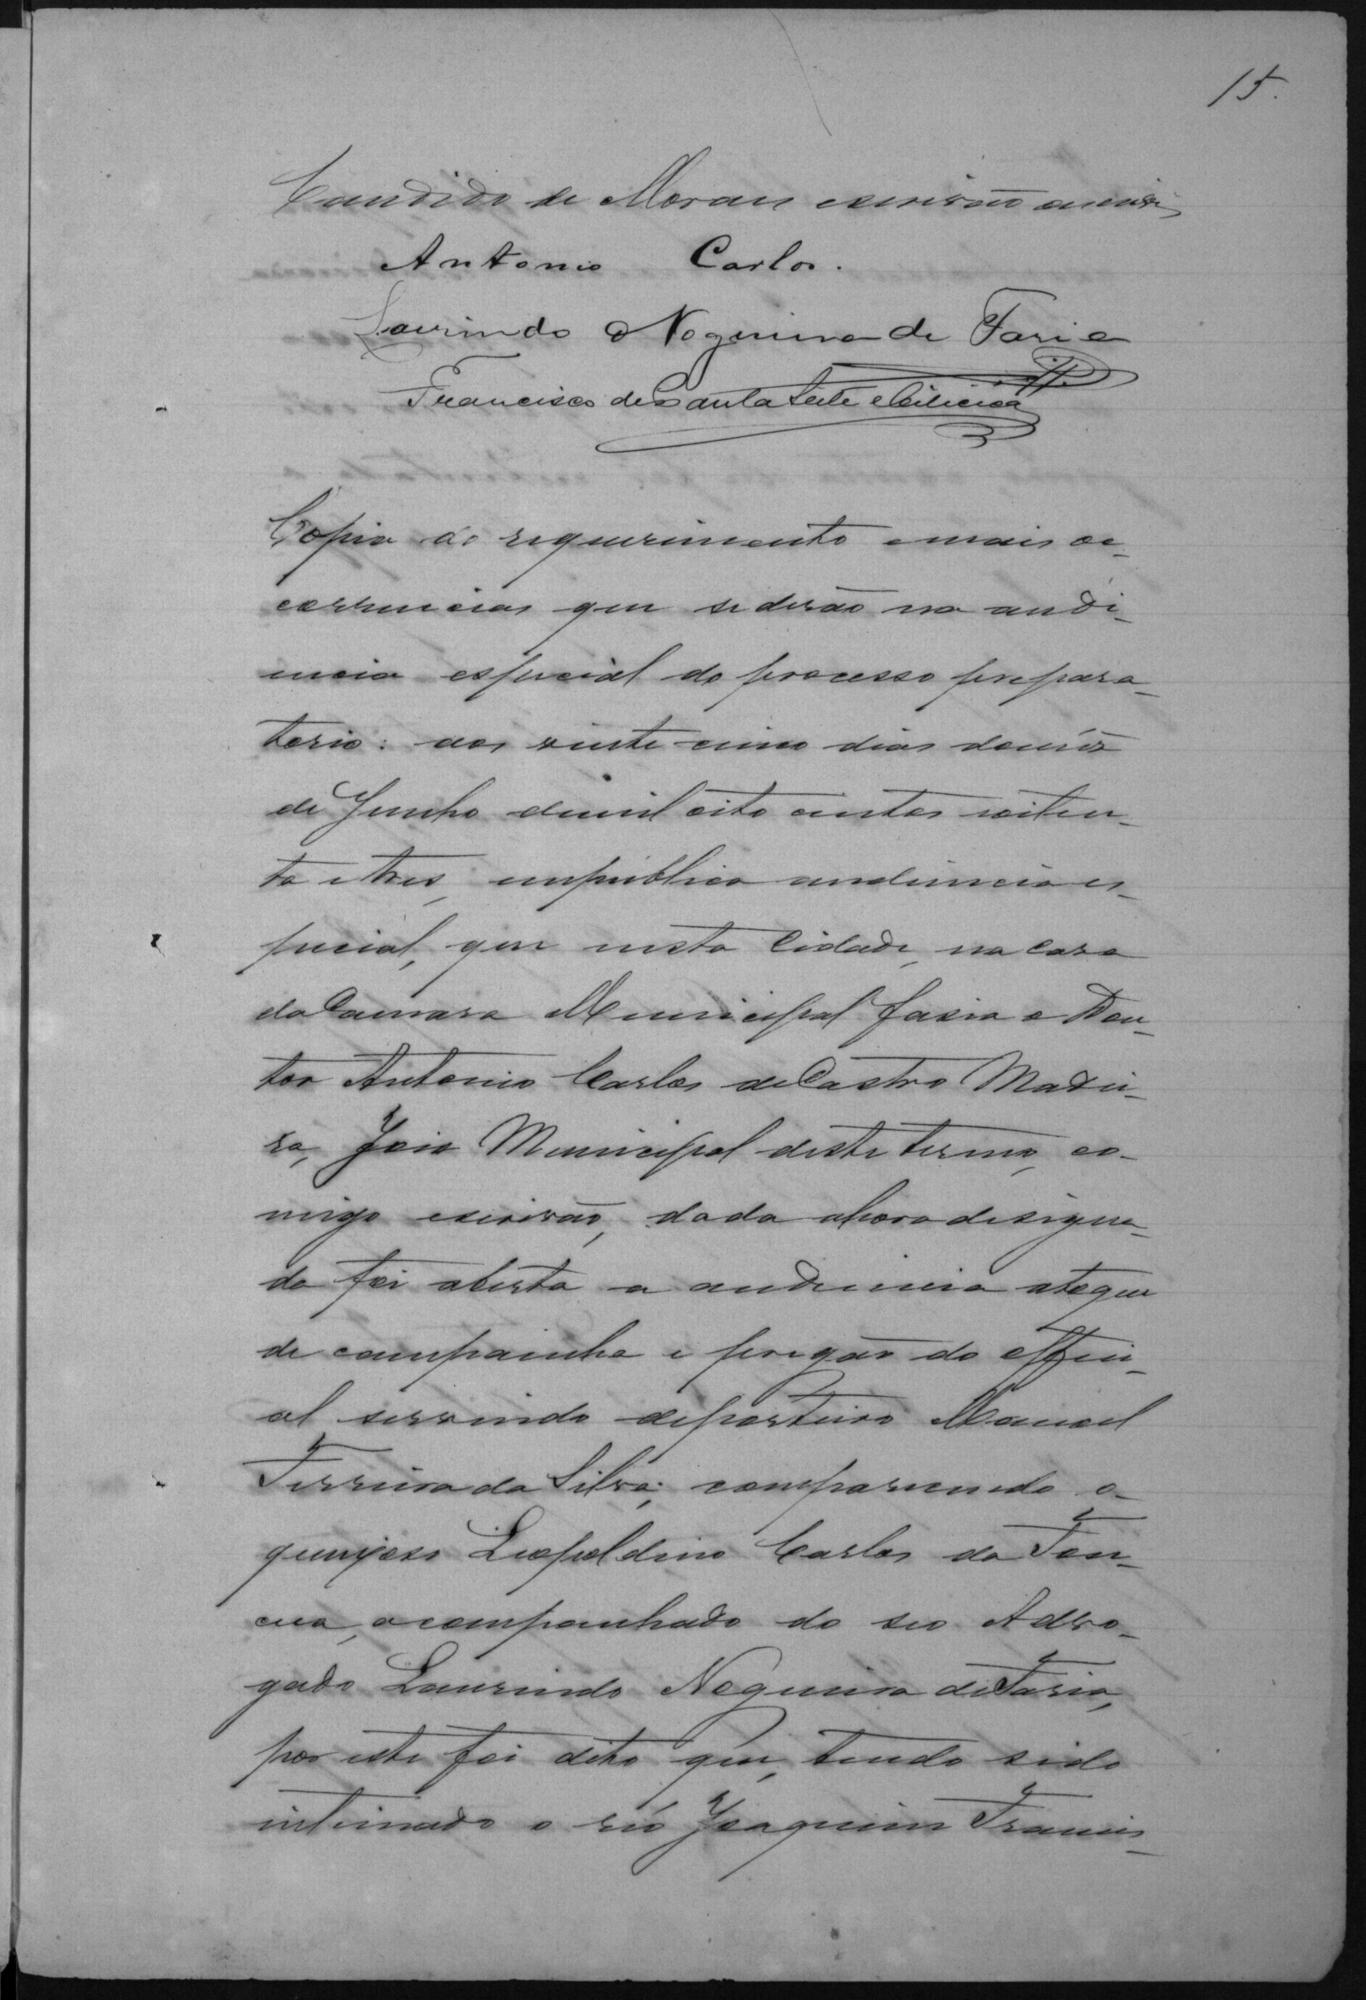 15.
Candido de Moraes escrivão
Antonio Carlos.
Laurindo Nogueira de Faria
Francisco de Paula Leite e Oiticica
Copia do requerimento e mais oc-
correncias que se derão na audi-
encia especial do processo prepara-
torio: aos vinte cinco dias do mêz
de Junho de mil oito centos oiten-
ta e tres, em publica audiencia es-
pecial, que nesta Cidade, na casa
da Camara Municipal fasia o Dou-
tor Antonio Carlos de Castro Madei-
ra, Juis Municipal deste termo, co-
migo escrivão, dada a hora designa-
da foi aberta a audiencia a toque
de campainha e pregão do offici-
al servindo de porteiro Manoel
Ferreira da Silva; comparecendo o
queixoso Leopoldino Carlos da Fon-
ceca, acompanhado do seo Advo-
gado Laurindo Nogueira de Faria,
por este foi dito que, tendo sido
intimado o réo Joaquim Francis-